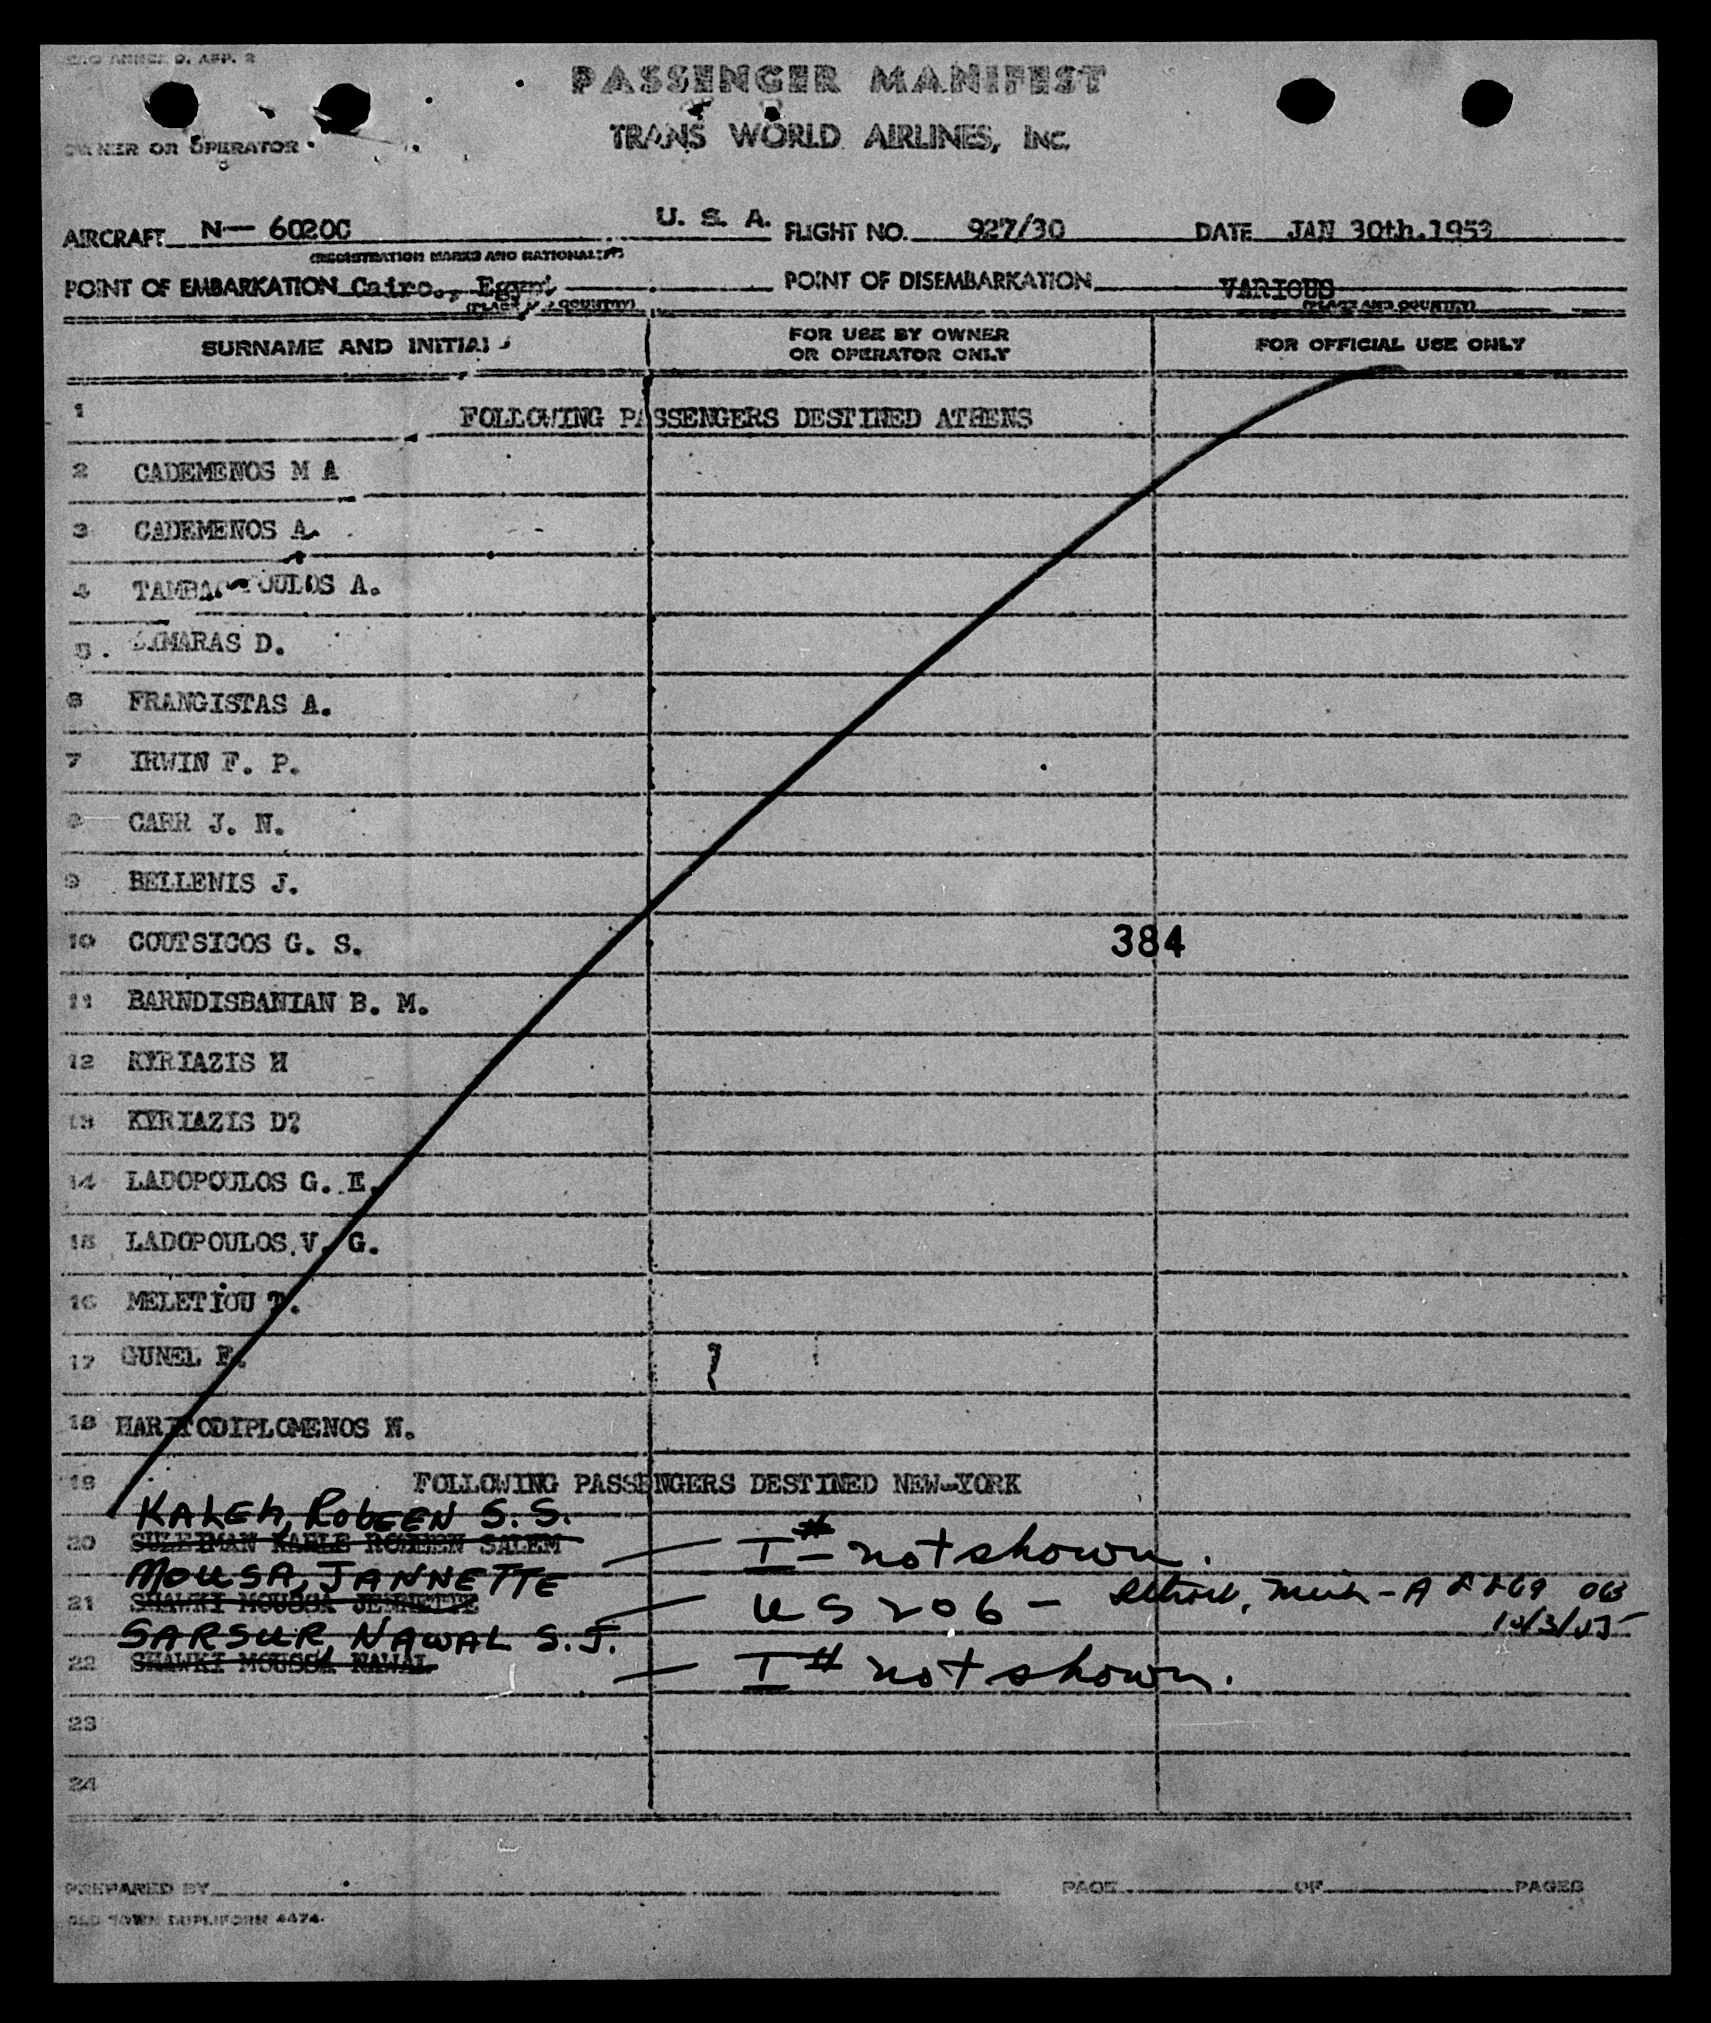 ANNEX 9, APP. 2
PASSENGER MANIFEST
TRANS WORLD AIRLINES, INC.
OWNER OR OPERATOR
AIRCRAFT N— 6020C U. S. A. FLIGHT NO. 927/30 DATE JAN 30th.1953
(REGISTRATION MARKS AND NATIONALITY)
POINT OF EMBARKATION Cairo., Egypt POINT OF DISEMBARKATION VARIOUS
(PLACE AND COUNTRY) (PLACE AND COUNTRY)
SURNAME AND INITIALS FOR USE BY OWNER OR OPERATOR ONLY FOR OFFICIAL USE ONLY
1 FOLLOWING PASSENGERS DESTINED ATHENS
2 CADEMENOS M A
3 CADEMENOS A.
4 A.
5 D.
6 FRANGISTAS A.
7 IRWIN F. P.
8 CARR J. N.
9 BELLENIS J.
10 COUTSICOS G. S.
384
11 BARNDISBANIAN B. M.
12 KYRIAZIS H
13 KYRIAZIS D?
14 LADOPOULOS G. E.
15 LADOPOULOS V. G.
16 MELETIOU T.
17 GUNEL F.
18 HARITODIPLOMENOS N.
19 FOLLOWING PASSENGERS DESTINED NEW-YORK
KALEH, ROBEEN S. S.
20 SULEIMAN KAHLE ROBEEN SALEM — I# — not shown.
MOUSA, JANNETTE
21 SHAWKI MOUSSA JENNETTE — US 206 — Detroit, Mich - A
SARSUR, NAWAL S. J.
22 SHAWKI MOUSSA NAWAL — I# not shown.
23
24
PREPARED BY PAGE OF PAGES
OLD TOWN DUPLIFORM 4474.